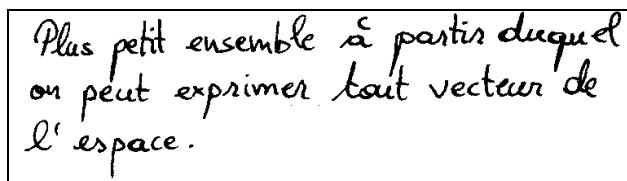 Plus petit ensemble à partir duquel
on peut exprimer tout vecteur de
l'espace.